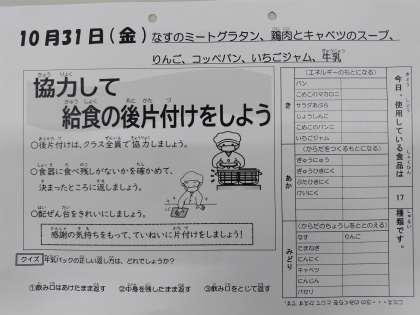 10月31日(金) なすのミートグラタン、鶏肉とキャベツのスープ、
りんご、コッペパン、いちごジャム、牛乳
協力して
給食の後片付けをしよう
○後片付けは、クラス全員で協力しましょう。
○食器に食べ残しがないかを確かめて、
決まったところに返しましょう。
○配ぜん台をきれいにしましょう。
感謝の気持ちをもって、ていねいに片付けをしましょう!
クイズ 牛乳パックの正しい返し方は、どれでしょうか?
①飲み口はあけたまま返す ②中身を残したまま返す ③飲み口をとじて返す
き
(エネルギーのもとになる)
パン
こめこのマカロニ
サラダあぶら
じょうしんこ
こめこのパンこ
いちごジャム
あか
(からだをつくるもとになる)
ぎゅうにゅう
ぎゅうひきにく
ぶたひきにく
けいにく
みどり
(からだのちょうしをととのえる)
なす りんご
たまねぎ
にんにく
キャベツ
にんじん
パセリ
今日、使用している食品は
17
種類です。